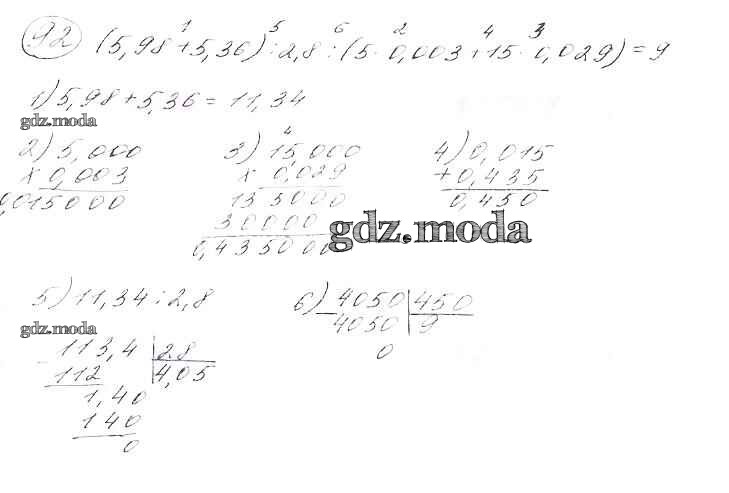 92 (5,98 + 5,36) : 2,8 : (5 · 0,003 + 15 · 0,029) = 9
1 5 6 2 4 3
1) 5,98 + 5,36 = 11,34
gdz.moda
2) 5,000
x 0,003
0,015000
3) 15,000
4
x 0,029
135000
30000
0,435000
4) 0,015
+ 0,435
0,450
gdz.moda
5) 11,34 : 2,8
gdz.moda
113,4 28
112 4,05
1,40
140
0
6) 4050 450
4050 9
0